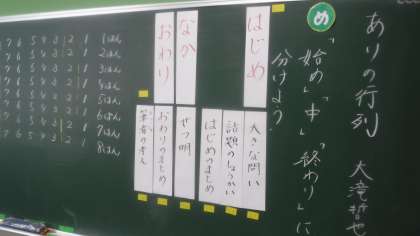 ありの行列　大滝哲也
め
「始め」「中」「終わり」に
分けよう。
はじめ
なか
おわり
大きな問い
話題のしょうかい
はじめのまとめ
せつ明
おわりのまとめ
筆者の考え
7 6 5 4 3 2 1 1ぱん
7 6 5 4 3 2 1 2はん
7 6 5 4 3 2 1 3ぱん
7 6 5 4 3 2 1
7 6 5 4 3 2 1
7 6 5 4 3 2 1 6ぱん
7 6 5 4 3 2 1 7はん
7 6 5 4 3 2 1 8ぱん